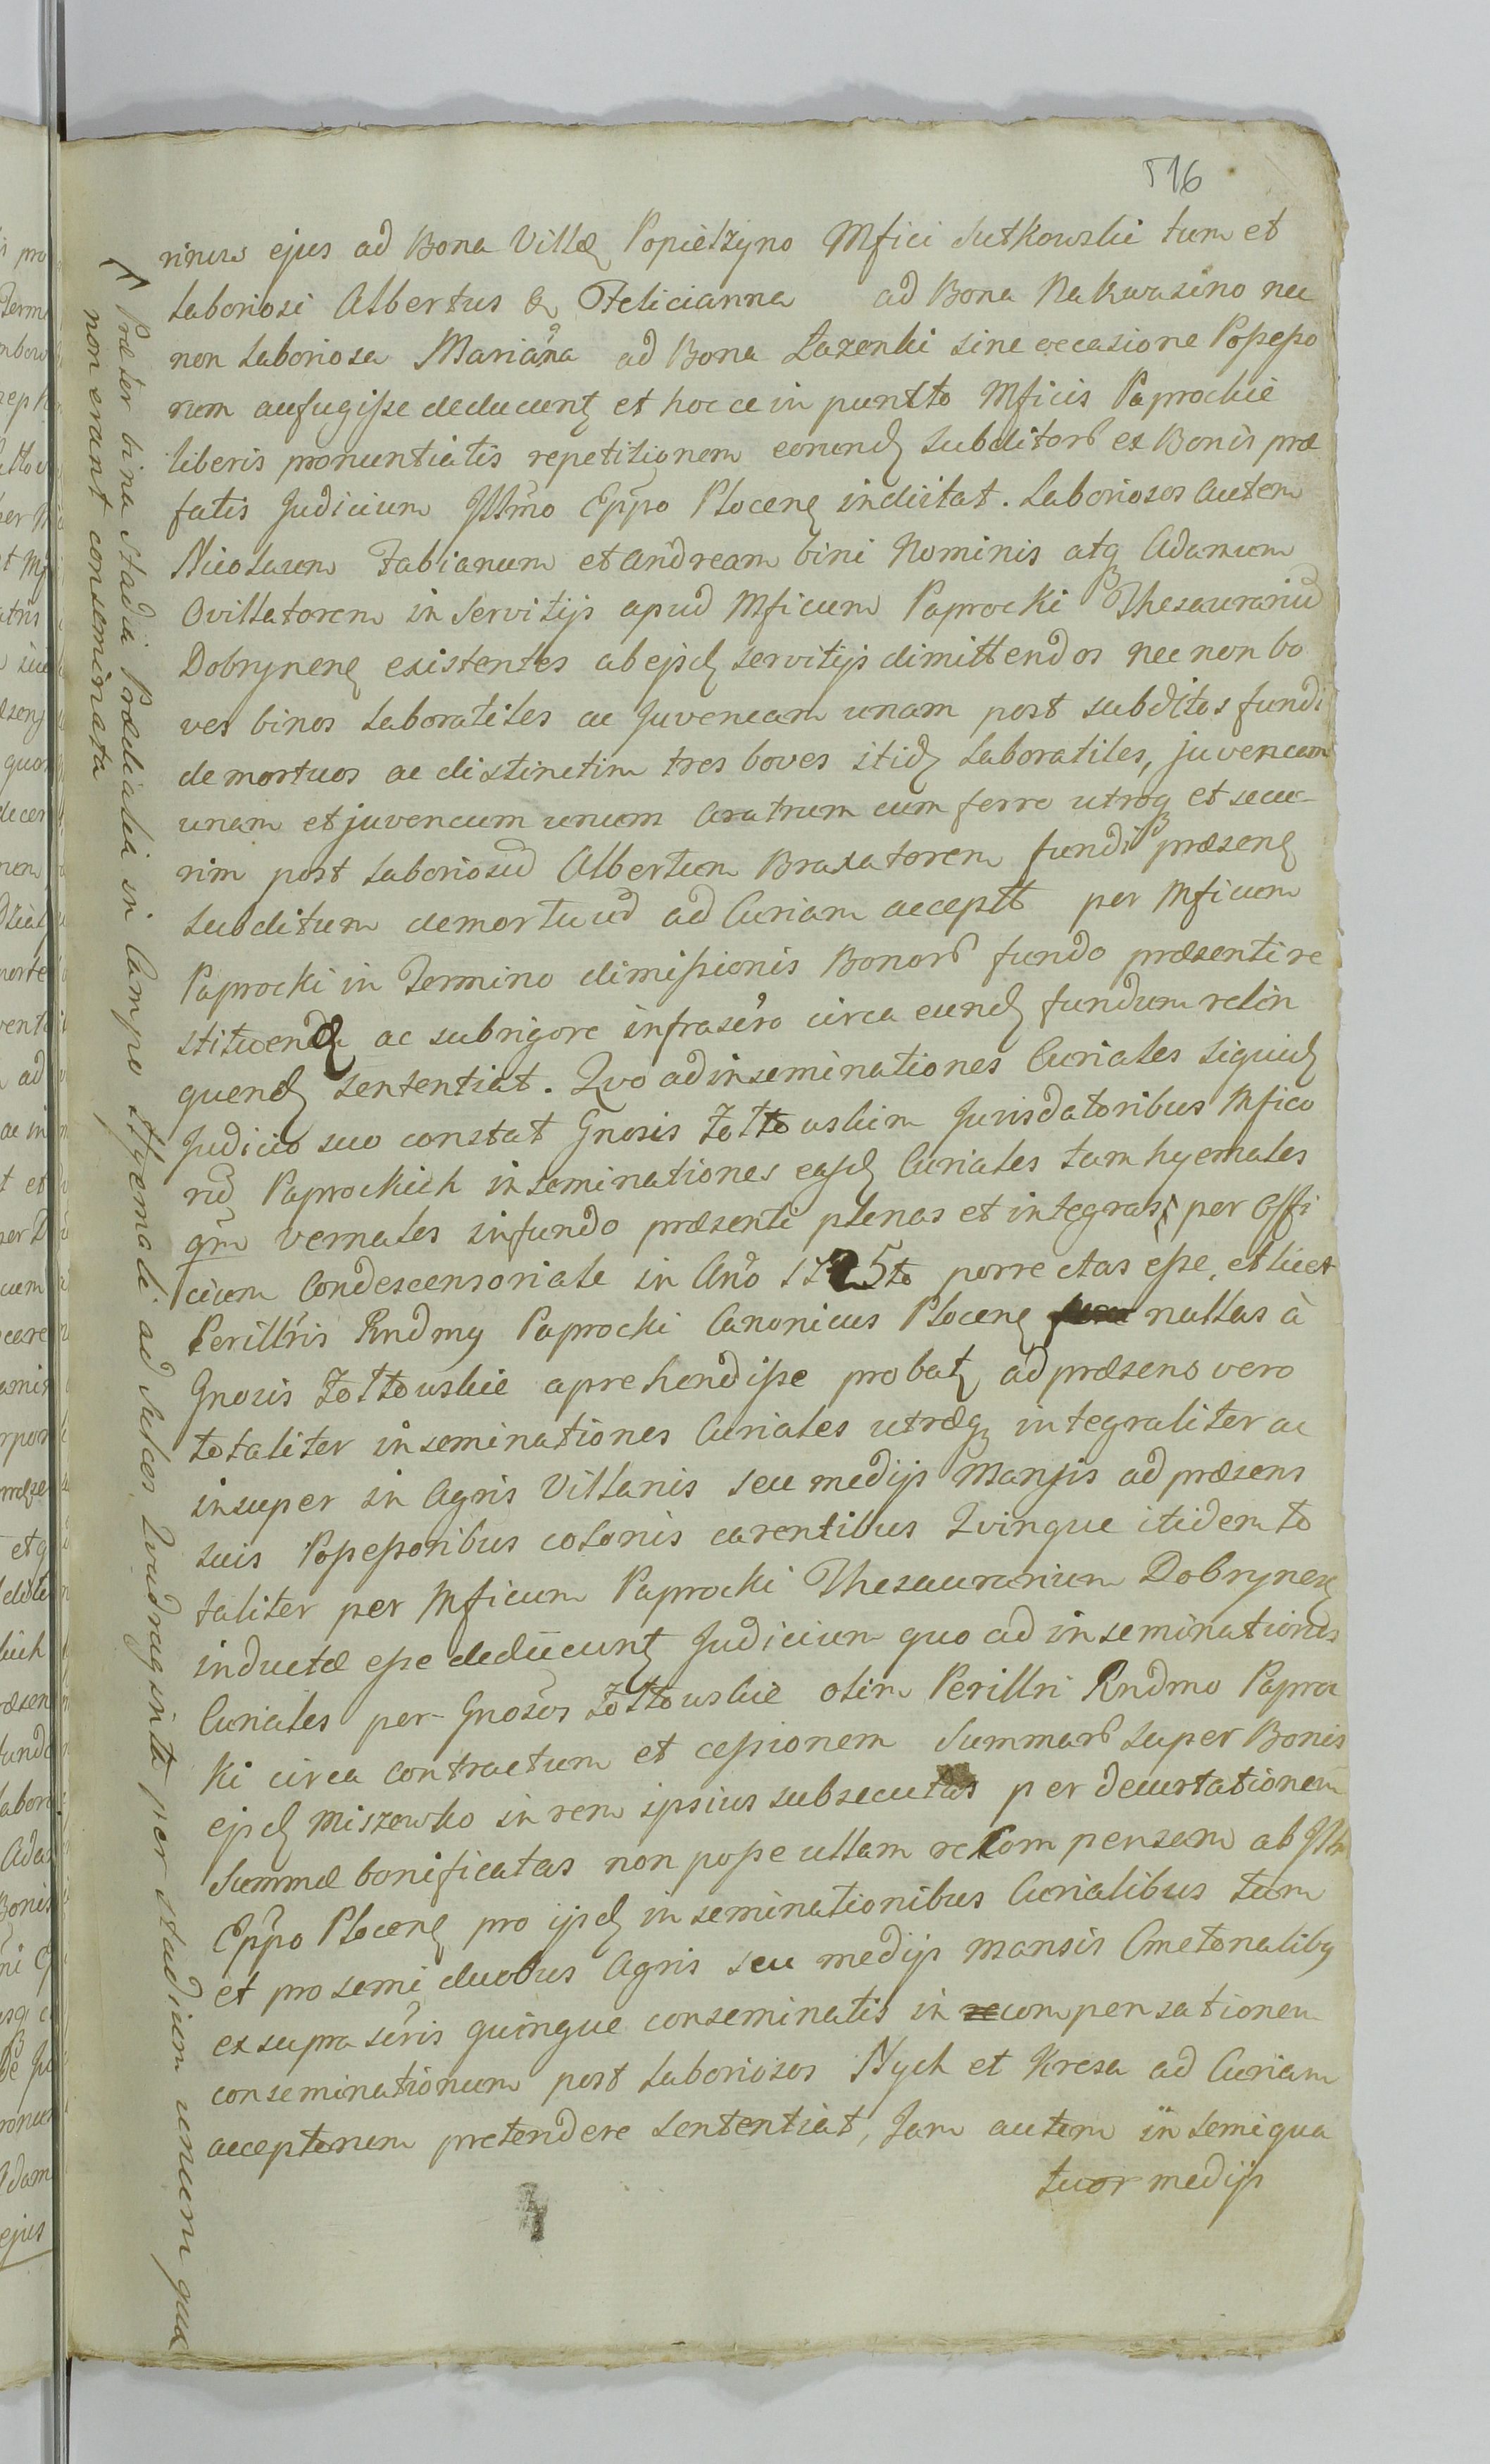 516
rinus ejus ad Bona Villæ Popielżyno Mfici Sutkowski tum et
laboriosi Albertus & Felicianna ad Bona Nakwasino nec
non laboriosa Mariãna ad Bona Łazenki sine occasione Poſseſso
rum aufugiſse deducunt et hocce in puncto Mficis Paprockie
liberis pronuntiatis repetitionem eorund subditor ex Bonis præ
fatis Judicium Illmo Eppo Plocen indicitat. Laboriosos autem
Nicolaum Fabianum et Andream bini Nominis atq Adamum
Ovillatorem in Servitijs apud Mficum Paprocki Thesaurariũ
Dobrynen existentes ab ejsd servitijs dimittendos nec non bo
ves binos laboratiles ac Juvencam unam post subditos fundi
demortuos ac distinctim tres boves itid laboratiles, juvencam
unam et juvencum unum aratrum cum ferro utroq et secu-
rim post laboriosũ Albertum Braxatorem fundi præsen
subditum demortuũ ad Curiam accept per Mficum
Paprocki in Termino dimiſsionis Bonor fundo præsenti re
stituend ac sub rigore infrascro circa eund fundum relin
quend sententiat. Qvo ad inseminationes Curiales siquid
Judicio suo constat Gnosis Żołtowskim Jurisdatoribus Mfico
rũ Paprockich inseminationes easd Curiales tam hyemales
qm vernales in fundo præsenti plenas et integras per Offi
cium Condescensoriale in Año 1725to porrectas eſse, et licet
Perillris Rndmg Paprocki Canonicus Plocen nullas à
Gnosis Żołtowskie aprehendiſse probat, ad præsens vero
totaliter inseminationes Curiales utræq integraliter ac
insuper in Agris Villanis seu medijs Mansis ad præsens
suis Poſseſsoribus colonis carentibus Qvinque itidem to
taliter per Mficum Paprocki Thesaurarium Dobrynen
inductæ eſse deducunt Judicium quo ad inseminationes
Curiales per Gnosos Żołtowskie olim Perillri Rndmo Paproc
ki circa contractum et ceſsionem Summar super Bonis
ejsd Miszewko in rem ipsius subsecutas per decurtationem
Summæ bonificatas non poſse ullam recompensam ab Illm
Eppo Plocen pro ijsd inseminationibus Curialibus tum
et pro semi duobus Agris seu medijs Mansis Cmetonalibg
ex supra scris quinque conseminatis in recompensationem
conseminationum post laboriosos Nych et Kresa ad Curiam
acceptarum pretendere sententiat, Jam autem in semiqua
tuor medijs
Præter bina stadia Prædialia in Campo Hyemali ad sulcos Qvadraginta per stadium unum quæ
non erant conseminata